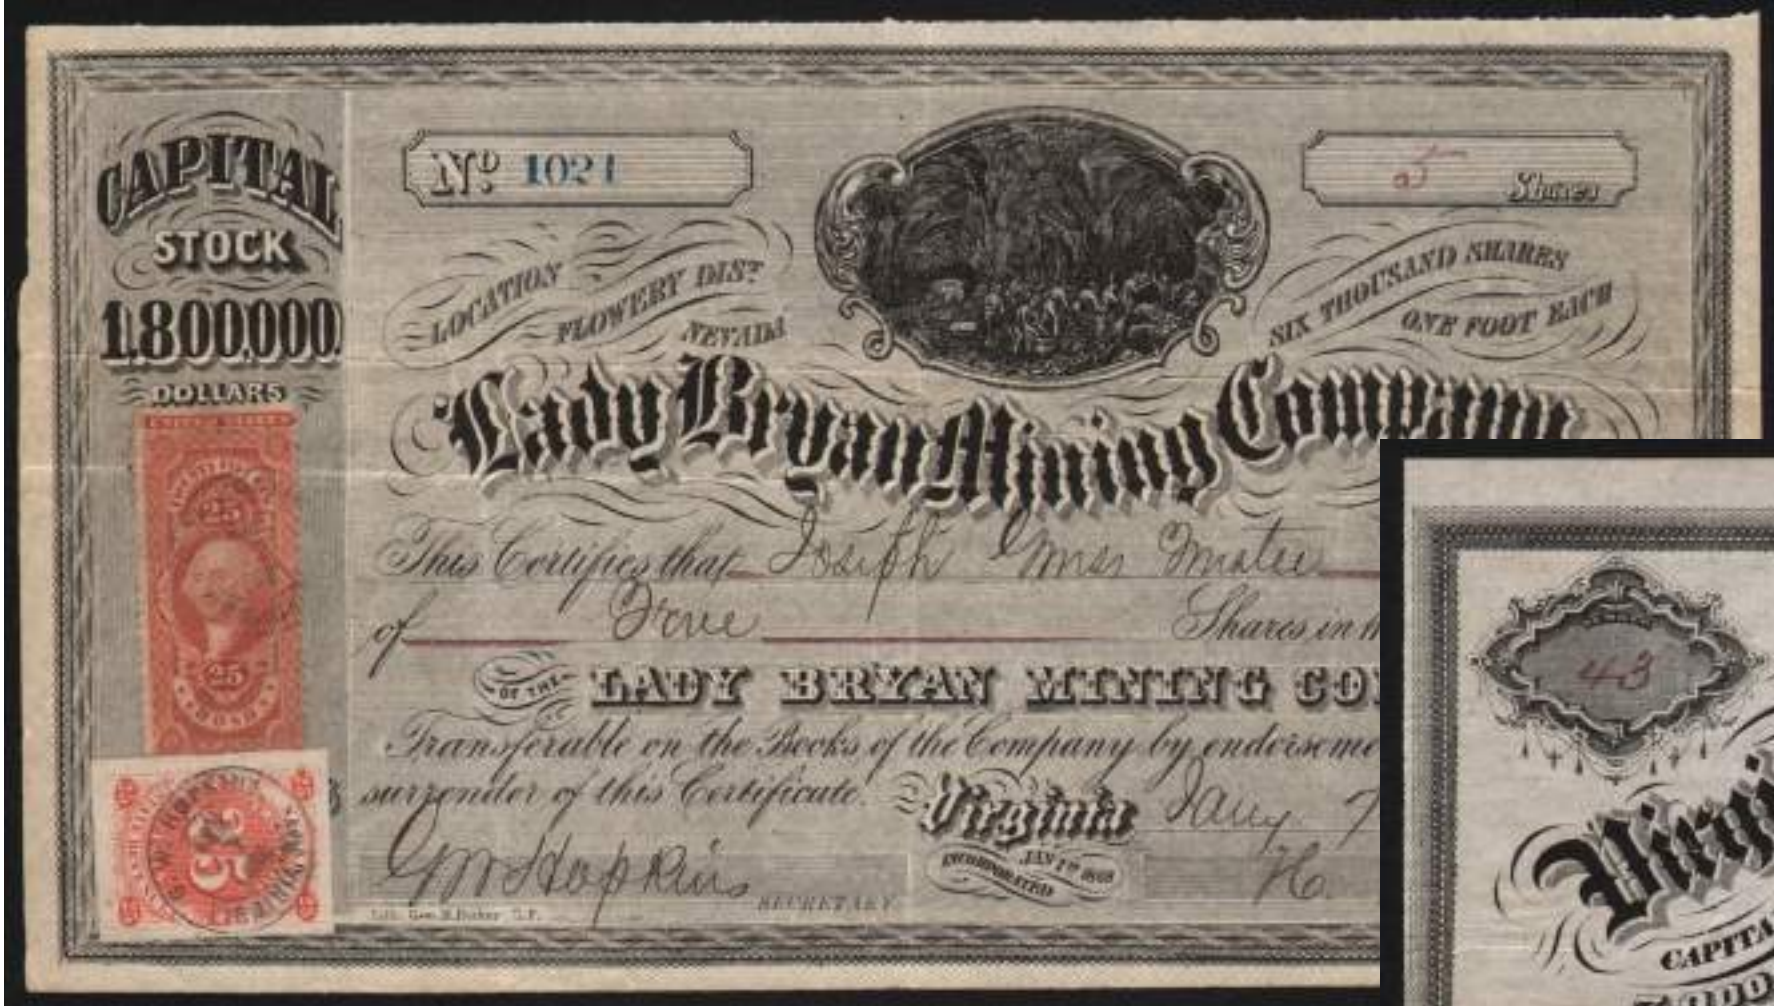 CAPITAL
STOCK
1.800.000.
DOLLARS
Nº 1021
5 Shares
LOCATION
FLOWERY DIST
NEVADA
SIX THOUSAND SHARES
ONE FOOT EACH
Lady Bryan Mining Company
UNITED STATES
25
25
This Certifies that Joseph Trustee
of Five Shares in
OF THE LADY BRYAN MINING CO
Transferable on the Books of the Company by endorseme
surrender of this Certificate. Virginia Jany. 7
INCORPORATED JAN 7TH 1868
GW Hopkins SECRETARY
H.
Lith. Geo. H. Baker S.F.
25
43
Virgi
CAPITA